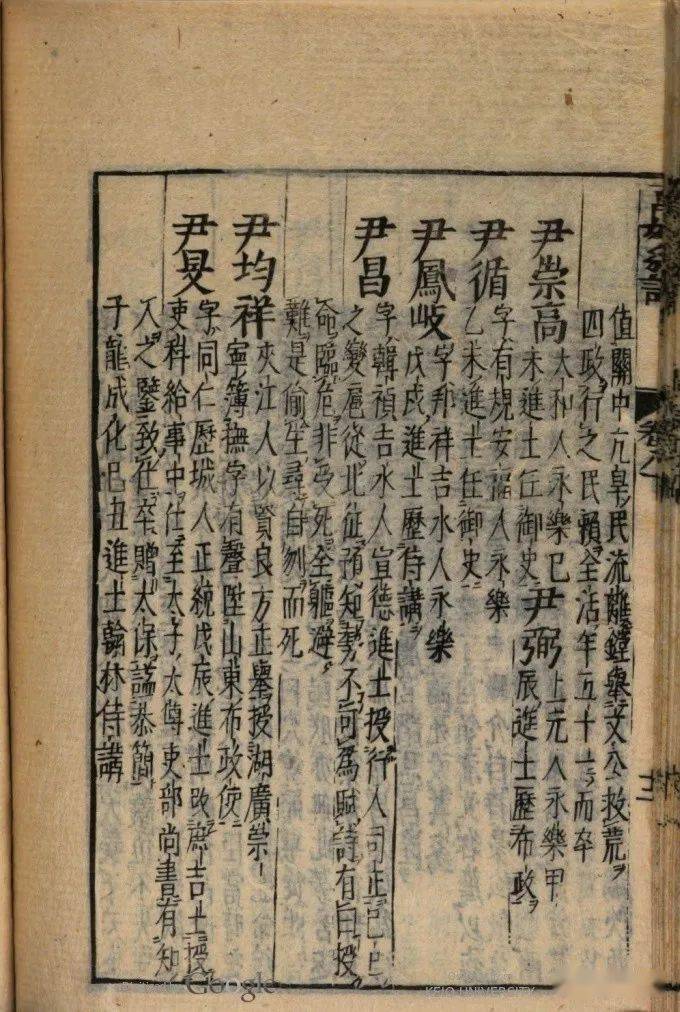 值關中亢旱民流離鏜舉文公救荒
四政行之民賴全活年五十一而卒
尹崇高 太和人永樂巳
未進士任御史
尹弼 上元人永樂甲
辰進士歷布政
尹循 字有規安福人永樂
乙未進士任御史
尹鳳岐 字邦祥吉水人永樂
戊戌進士歷侍講
尹昌 字韓禎吉水人宣德進士授行人司正己巳
之變扈從北征預知勢不可為賦詩有曰授
命臨危非受死全軀避
難是偷生尋自刎而死
尹均祥 夾江人以賢良方正舉授湖廣崇
寧簿撫字有聲陞山東布政使
尹旻 字同仁歷城人正統戊辰進士改庶吉士授
吏科給事中仕至太子太傅吏部尚書有知
人之鑒致仕卒贈太保謚恭簡
子龍成化巳丑進士翰林侍講
Google
KEIO UNIVERSITY